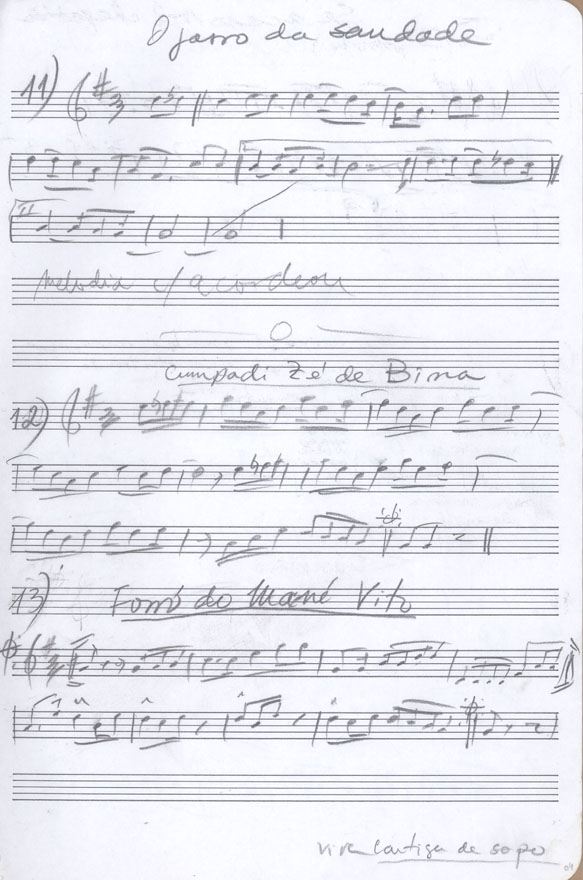 O jarro da saudade
11)
II
Melodia c/ acordeon
Cumpadi Zé de Bina
12)
13) Forró do Mané Vito
vire Cantiga de sapo